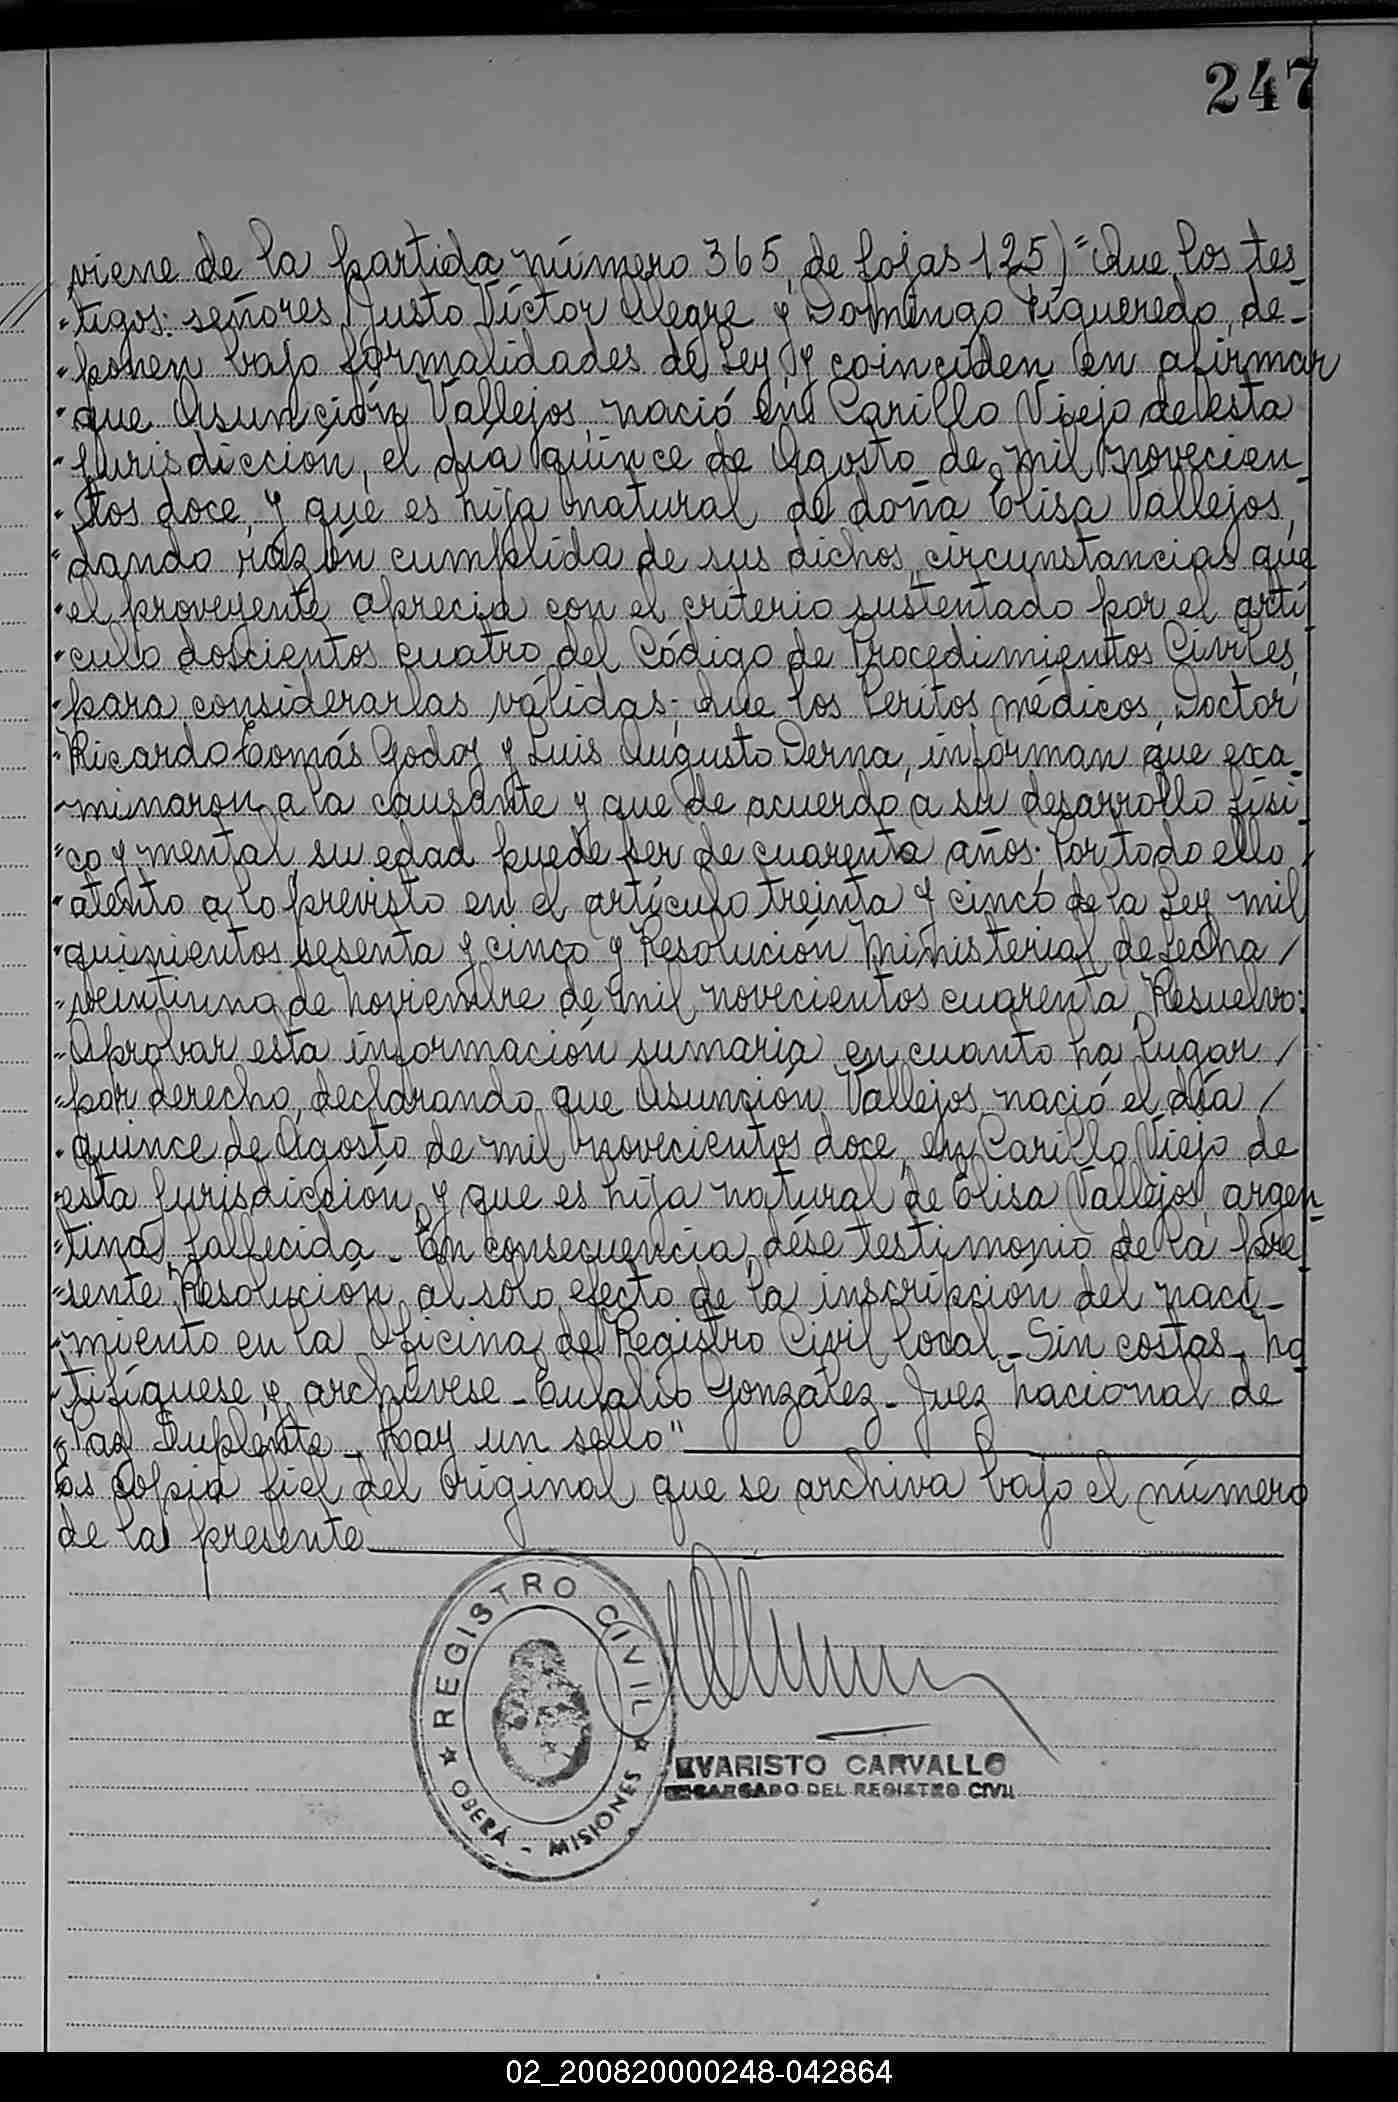 247
viene de la partida número 365, de fojas 125) "Que los tes
"tigos: señores Justo Víctor Alegre y Domingo Figueredo, de-
"ponen bajo formalidades de Ley, y coinciden en afirmar
"que Asunción Vallejos, nació en Carillo Viejo de esta
"jurisdicción, el día quince de Agosto de mil novecien
"tos doce, y que es hija natural de doña Elisa Vallejos,
"dando razón cumplida de sus dichos, circunstancias que
"el proveyente aprecia con el criterio sustentado por el artí
"culo doscientos cuatro del Código de Procedimientos Civiles,
"para considerarlas válidas; Que los Peritos médicos, Doctor
"Ricardo Tomás Godoy y Luis Augusto Derna, informan que exa-
"minaron a la causante y que de acuerdo a su desarrollo físi
"co y mental, su edad puede ser de cuarenta años; Por todo ello /
"atento a lo previsto en el artículo treinta y cinco de la Ley mil
"quinientos sesenta y cinco y Resolución Ministerial de fecha /
"veintiuno de Noviembre de mil novecientos cuarenta, Resuelvo:
"Aprobar esta información sumaria en cuanto ha lugar /
"por derecho, declarando que Asunción Vallejos nació el día /
"quince de Agosto de mil novecientos doce, en Carillo Viejo de
"esta jurisdicción, y que es hija natural de Elisa Vallejos, argen-
"tina fallecida - En consecuencia, dése testimonio de la pre
"sente Resolución al solo efecto de la inscripción del naci-
"miento en la Oficina del Registro Civil local - Sin costas - No
"tifíquese y archívese - Eulalio González - Juez Nacional de
"Paz Suplente - Hay un sello"
Es copia fiel del original que se archiva bajo el número
de la presente
REGISTRO CIVIL
OBERÁ - MISIONES
EVARISTO CARVALLO
ENCARGADO DEL REGISTRO CIVIL
02_200820000248-042864